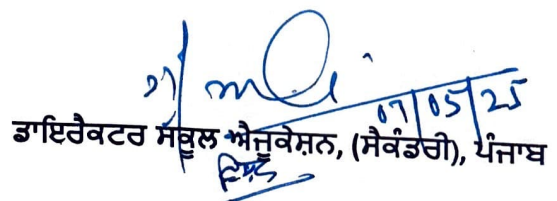 07/05/25
ਡਾਇਰੈਕਟਰ ਸਕੂਲ ਐਜੂਕੇਸ਼ਨ, (ਸੈਕੰਡਰੀ), ਪੰਜਾਬ